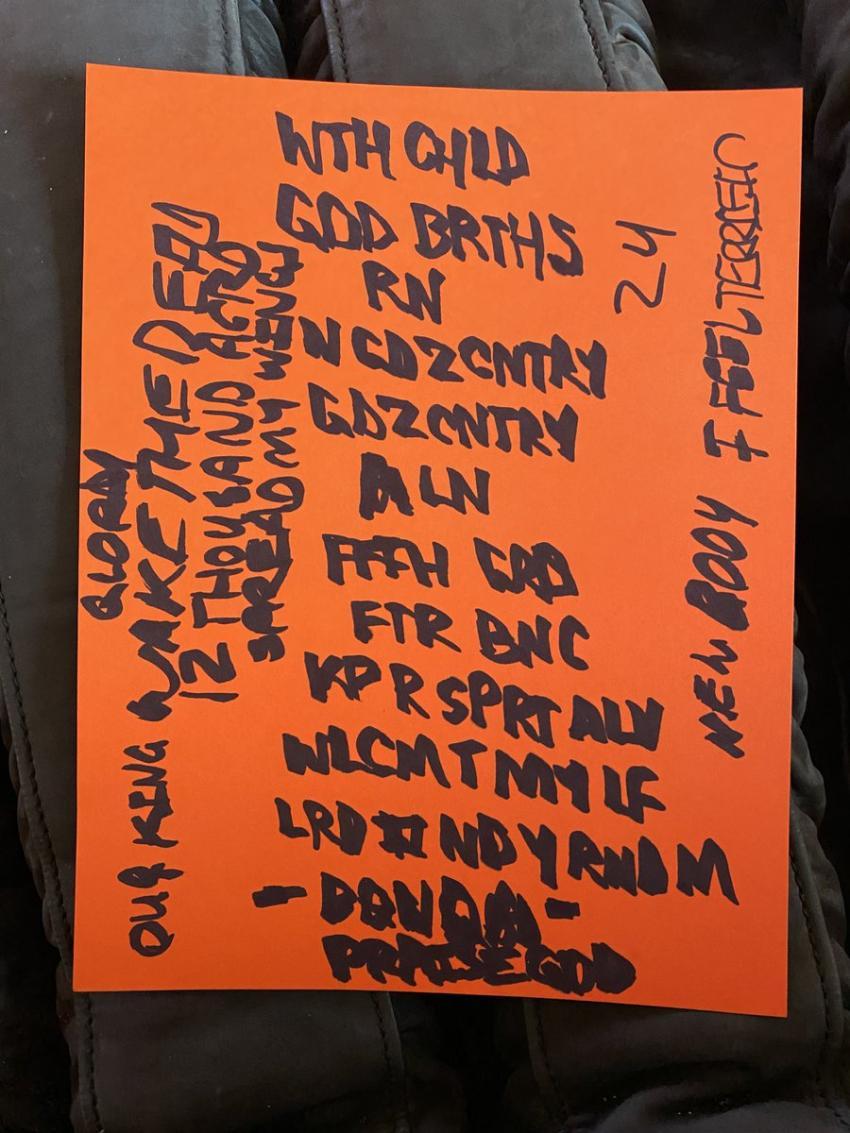 WTH CHLD
GOD BRTHS
RN
N GDZ CNTRY
GDZ CNTRY
LN
FTH CRD
FTR BNC
KP R SPRT ALV
WLCM T MY LF
LRD NDY RNDM
- DONDA -
PRAISE GOD
24
NEW BODY I FEEL TERRIFIC
GLORY
OUR KING WAKE THE DEAD
12 THOUSAND ACRE
SPREAD MY WINGS